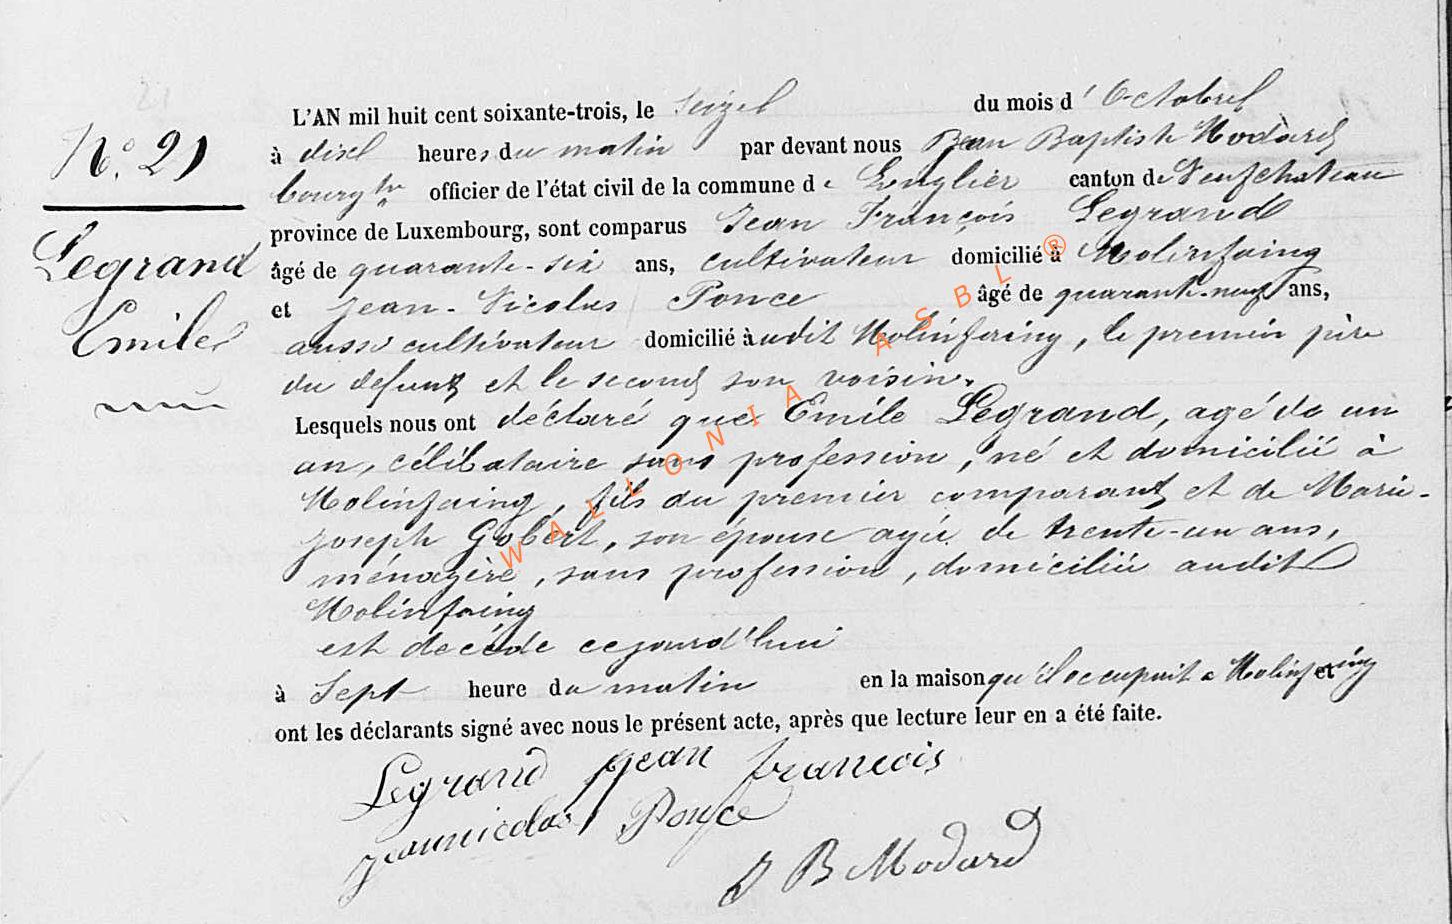 N.° 21
Legrand
Emile
L'AN mil huit cent soixante-trois, le Seize du mois d' Octobre
à dise heures du matin par devant nous Jean Baptiste Modard
bourgtre officier de l'état civil de la commune de Léglier canton de Neufchateau
province de Luxembourg, sont comparus Jean François Legrand
âgé de quarante-six ans, cultivateur domicilié à Molinfaing
et Jean-Nicolas Ponce âgé de quarante-neuf ans,
aussi cultivateur domicilié àudit Molinfaing, le premier père
du défunt et le second son voisin.
Lesquels nous ont déclaré que Emile Legrand, agé de un
an, célibataire sans profession, né et domicilié à
Molinfaing, fils du premier comparant et de Marie-
Joseph Gobert, son épouse agée de trente-un ans,
ménagère, sans profession, domiciliée audit
Molinfaing
est décédé cejourd'hui
à Sept heure du matin en la maison qu'il occupait a Molinfaing et
ont les déclarants signé avec nous le présent acte, après que lecture leur en a été faite.
Legrand Jean francois
jeannicolas Ponce
J B Modard
WALLONIA ASBL ®